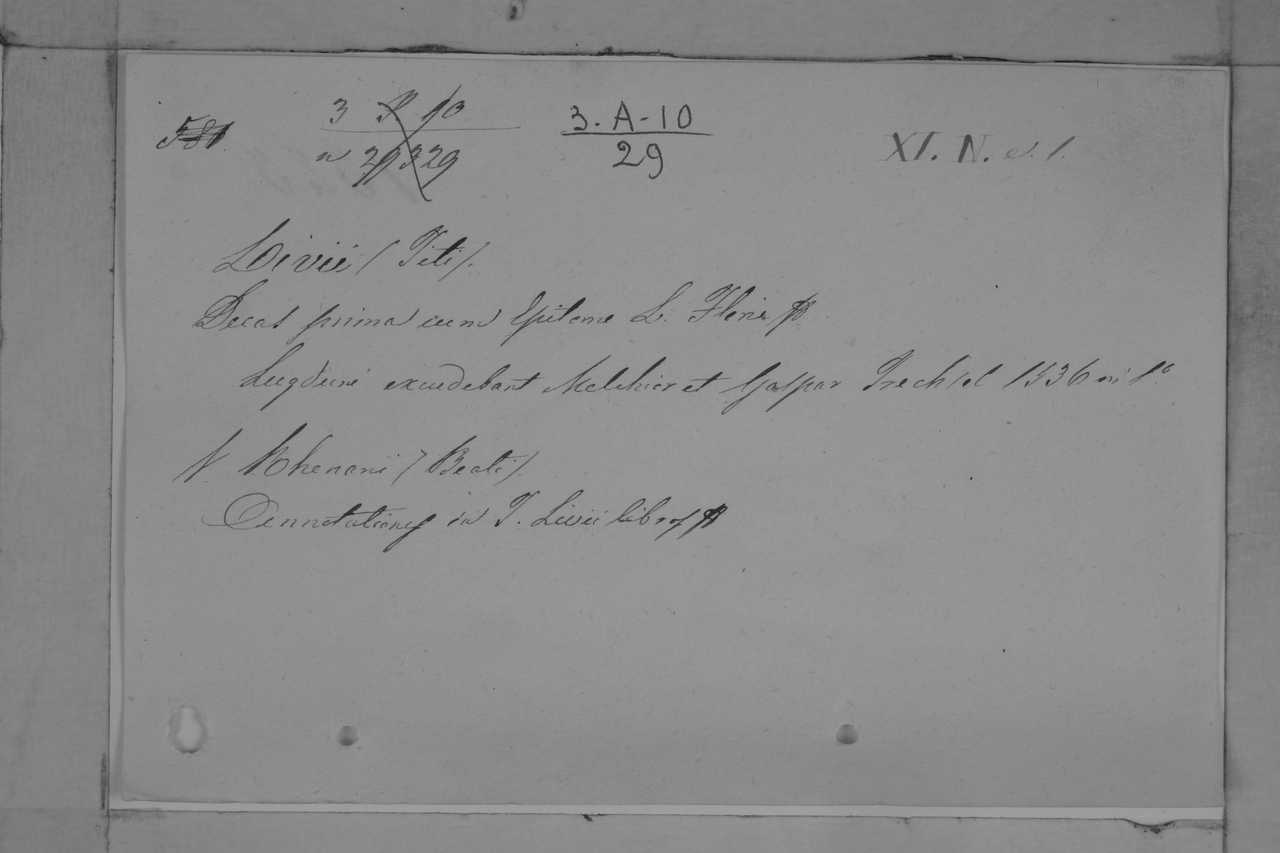 581.
3 10
n 29 329
3. A-10
29
XI. N. e. 1.
Livii (Titi).
Decas prima cum Epitome L. Flori
Lugduni excudebant Melchior et Gaspar Trechsel 1536 in 8º
N. Rhenani (Beati).
Annotationes in T. Livii libros